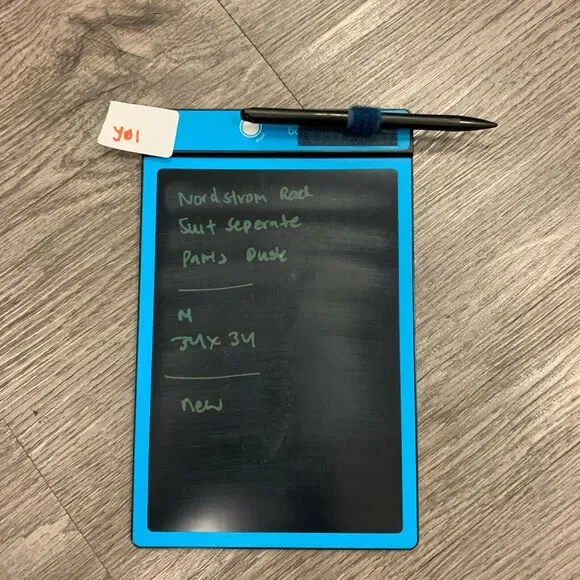 Y01
Nordstrom Rack
Suit Seperate
Pants Dusk
M
34x34
new